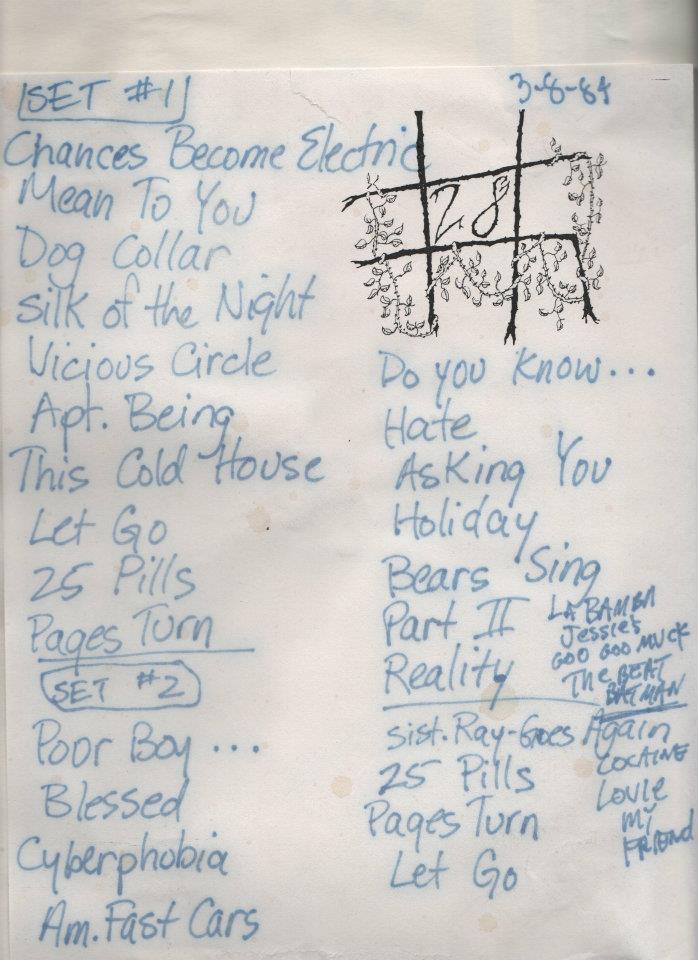 SET #1
3-8-84
Chances Become Electric
Mean To You
Dog Collar
Silk of the Night
Vicious Circle
Apt. Being
This Cold House
Let Go
25 Pills
Pages Turn
SET #2
Poor Boy ...
Blessed
Cyberphobia
Am. Fast Cars
28
Do you know...
Hate
Asking You
Holiday
Bears Sing
Part II
Reality
LA BAMBA
Jessie's
GOO GOO MUCK
THE BEAT
BATMAN
Sist. Ray-Goes Again
25 Pills
Pages Turn
Let Go
COCAINE
LOUIE
MY
FRIEND